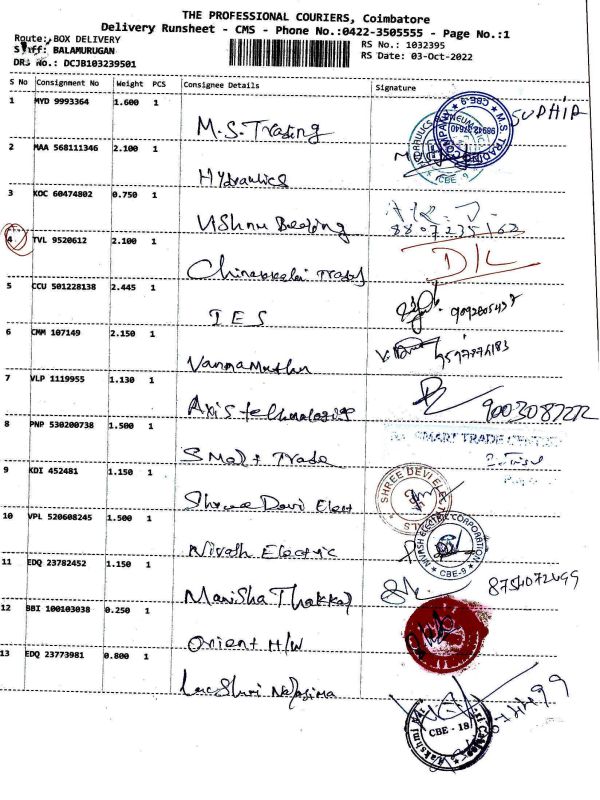 THE PROFESSIONAL COURIERS, Coimbatore
Delivery Runsheet - CMS - Phone No.:0422-3505555 - Page No.:1
Route: BOX DELIVERY
Staff: BALAMURUGAN
DRS No.: DCJB103239501
RS No.: 1032395
RS Date: 03-Oct-2022
S No Consignment No Weight PCS Consignee Details Signature
1 MYD 9993364 1.600 1
M.S. Trading
SUDHIR
M.S. TRADING COMPANY * CBE-9 *
2 MAA 568111346 2.100 1
Hydraulics
CBE - 9
3 KOC 60474802 0.750 1
Vishnu Bearing
8807235162
4 TVL 9520612 2.100 1
D/L
5 CCU 501228138 2.445 1
IES
6 CMM 107149 2.150 1
7 VLP 1119955 1.130 1
Axis technologies
8 PNP 530200738 1.500 1
Smart Trade
SMART TRADE
9 KDI 452481 1.150 1
Shree Devi Elect
SHREE DEVI ELE
10 VPL 520608245 1.500 1
Nivash Electric
NIVASH ELECTRIC CORPORATION * CBE-9 *
11 EDQ 23782452 1.150 1
Manisha Thakkar
12 BBI 100103038 0.250 1
Orient H/W
13 EDQ 23773981 0.800 1
CBE - 18